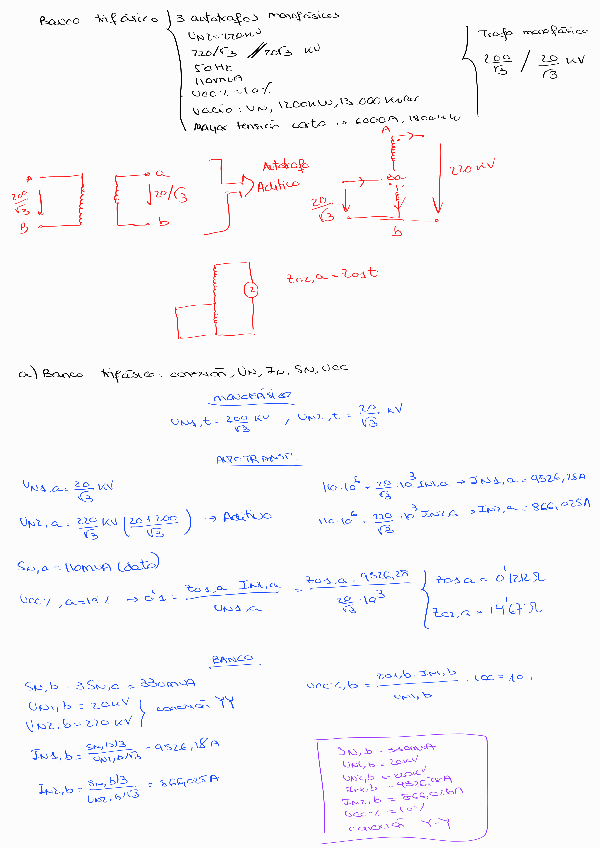 Banco trifásico
3 autotrafos monofásicos
UN2=220kV
220/√3 // 20/√3 kV
50 Hz
110MVA
Ucc%=10%
Vacio: UN, 1200kW, 13 000 kVAr
Mayor tensión corto : 6000A, 1800kW
Trafo monofásico
200/√3 / 20/√3 kV
A
200/√3
B
a
20/√3
b
Autotrafo
Aditivo
A
Ba
20/√3
b
220 KV
2
Zcc2,a = Zcst
a) Banco trifásico: conexión, UN, IN, SN, Ucc
MONOFÁSICO
UN1,t = 200/√3 KV , UN2,t = 20/√3 KV
AUTOTRANSF.
UN1,a = 20/√3 KV
110·10^6 = 20/√3 ·10^3 IN1,a → IN1,a = 9526,28A
UN2,a = 220/√3 KV (20+200/√3) → Aditivo
110·10^6 = 220/√3 ·10^3 IN2,a → IN2,a = 866,025A
SN,a = 110MVA (dato)
Ucc%,a=10% → 0'1 = Zcc1,a IN1,a / UN1,a = Zcc1,a · 9526,28 / 20/√3 ·10^3
Zcc1,a = 0'1212 Ω
Zcc2,a = 14'67 Ω
BANCO
SN,b = 3SN,a = 330MVA
UN1,b = 20KV
UN2,b = 220KV
conexión YY
Ucc%,b = Zcc1,b · IN1,b / UN1,b · 100 = 10%
IN1,b = SN,b/3 / UN1,b/√3 = 9526,28A
IN2,b = SN,b/3 / UN2,b/√3 = 866,025A
SN,b = 330MVA
UN1,b = 20KV
UN2,b = 220KV
IN1,b = 9526,28A
IN2,b = 866,025A
Ucc% = 10%
conexión Y-Y